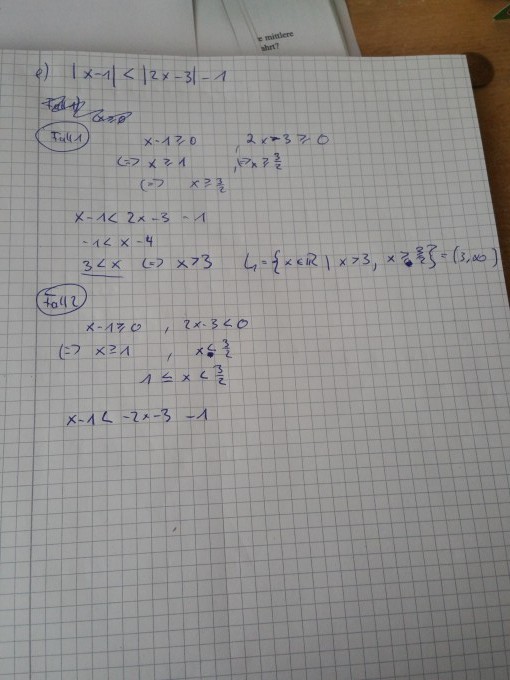 e mittlere
ahrt?
e) |x-1| < |2x-3| - 1
Fall 1
x-1 ≥ 0 , 2x-3 ≥ 0
(=> x ≥ 1 , (=> x ≥ 3/2
(=> x ≥ 3/2
x-1 < 2x-3 -1
-1 < x-4
3 < x (=> x > 3 L₁ = {x∈ℝ | x > 3, x ≥ 3/2} = (3,∞)
Fall 2
x-1 ≥ 0 , 2x-3 < 0
(=> x ≥ 1 , x < 3/2
1 ≤ x < 3/2
x-1 < -2x-3 -1